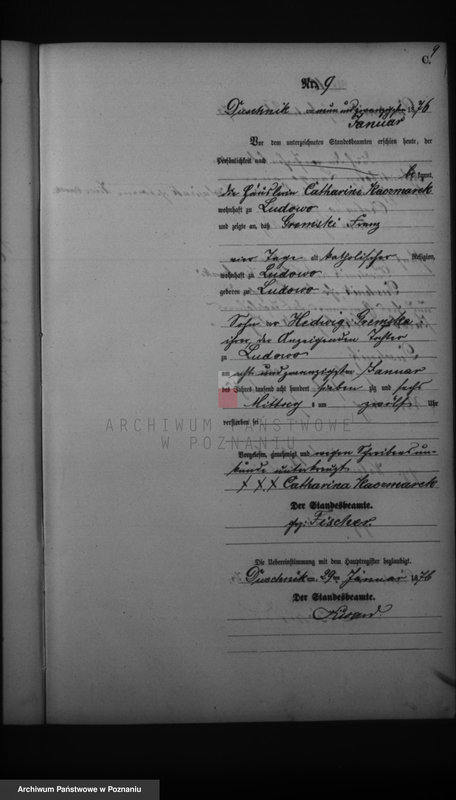 9
C.
Nr. 9
Duschnik am neun und zwanzigsten 1876
Januar
Vor dem unterzeichneten Standesbeamten erschien heute, der
Persönlichkeit nach
bekannt,
die Häuslerin Catharina Kaczmarek
wohnhaft zu Ludowo
und zeigte an, daß Gremski Franz
vier Tage alt katholischer Religion,
wohnhaft zu Ludowo
geboren zu Ludowo
Sohn der Hedwig Gremska
ihrer, der Anzeigenden Tochter
zu Ludowo
am acht und zwanzigsten Januar
des Jahres tausend acht hundert sieben zig und sechs
Mittag um zwölf Uhr
verstorben sei
Vorgelesen, genehmigt und wegen Schreibens un-
kunde unterkreuzt
XXX Catharina Kaczmarek
Der Standesbeamte.
gez. Fischer
Die Uebereinstimmung mit dem Hauptregister beglaubigt.
Duschnik am 29ten Januar 1876
Der Standesbeamte.
ARCHIWUM PAŃSTWOWE
W POZNANIU
Archiwum Państwowe w Poznaniu